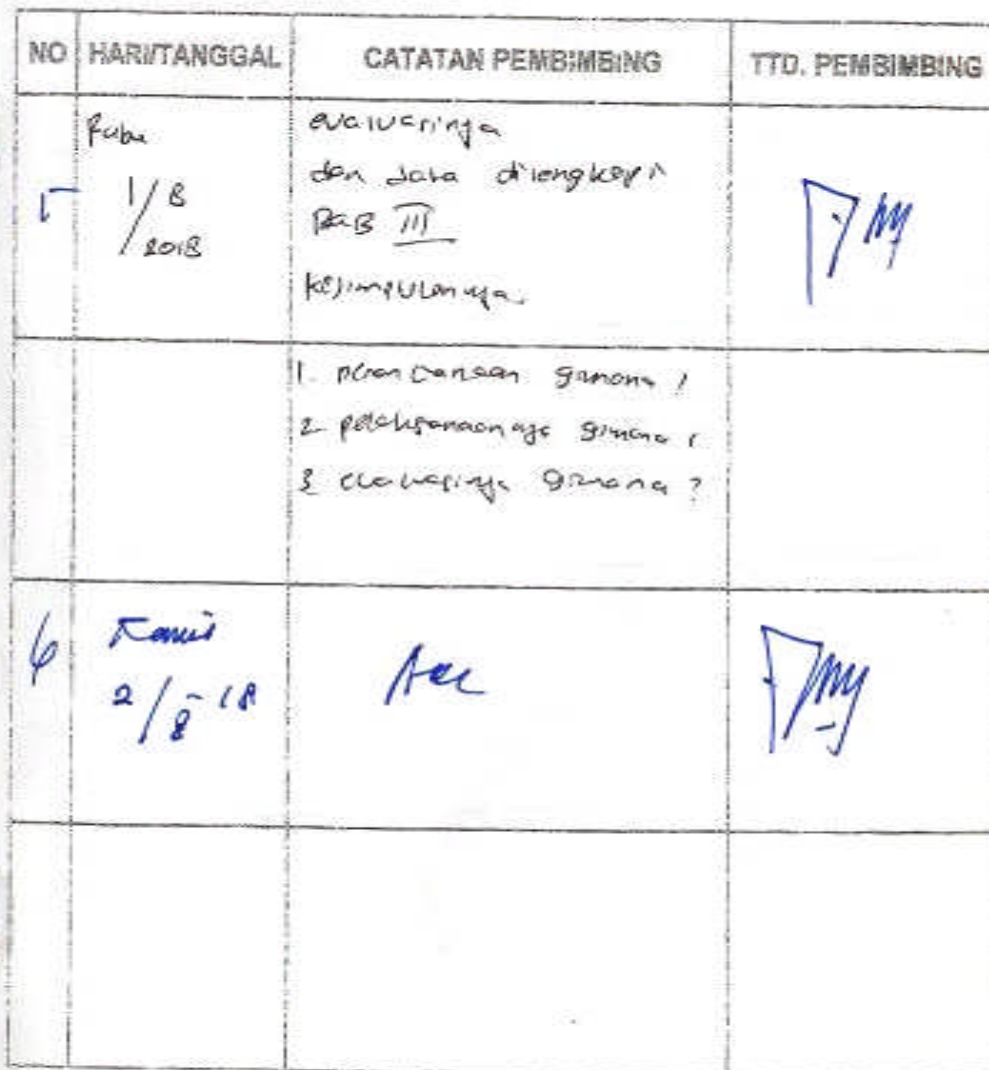 NO HARI/TANGGAL CATATAN PEMBIMBING TTD. PEMBIMBING
5
Rabu
1/8
2018
evaluasinya
dan data dilengkapi
BAB III
kesimpulannya.
1. perencanaan gimana ?
2. pelaksanaannya gimana ?
3. evaluasinya gimana ?
6
Kamis
2/8-18
Acc